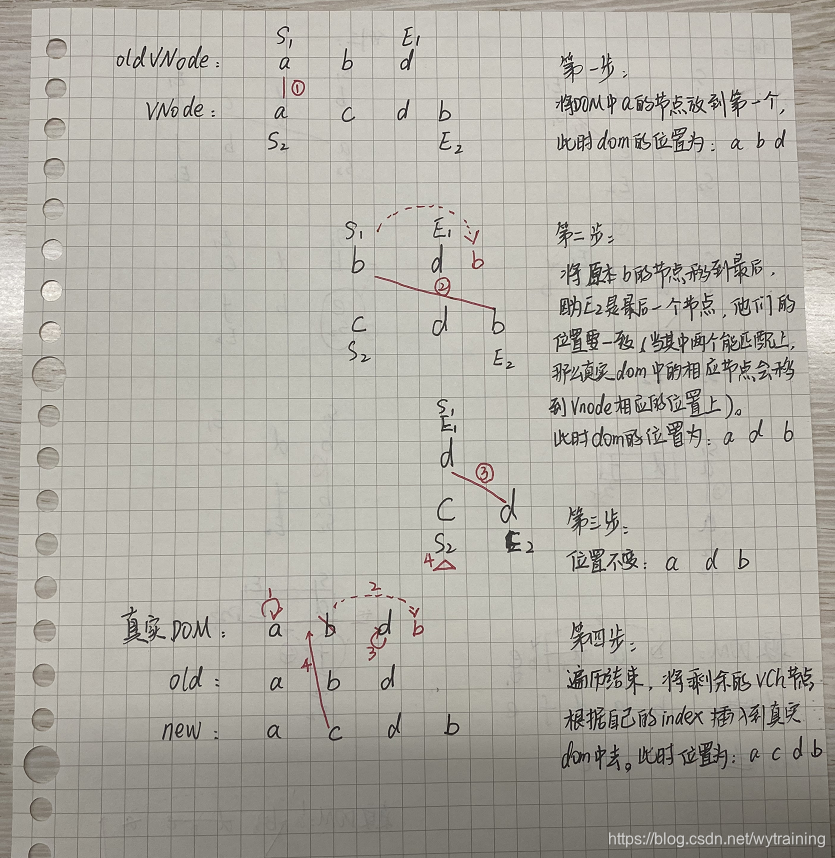 S₁ E₁
oldVNode: a b d
①
VNode: a c d b
S₂ E₂
第一步:
将DOM中a的节点放到第一个,
此时dom的位置为: a b d
S₁ E₁
b d b
②
c d b
S₂ E₂
第二步:
将原本b的节点移到最后,
因为E₂是最后一个节点, 他们的
位置要一致(当其中两个能匹配上,
那么真实dom中的相应节点会移
到Vnode相应的位置上)。
此时dom的位置为: a d b
S₁
E₁
d
③
C d
S₂ E₂
4
第三步:
位置不变: a d b
1 2
真实DOM: a b d b
3
4
old: a b d
new: a c d b
第四步:
遍历结束, 将剩余的VCh节点
根据自己的index插入到真实
dom中去。此时位置为: a c d b
https://blog.csdn.net/wytraining